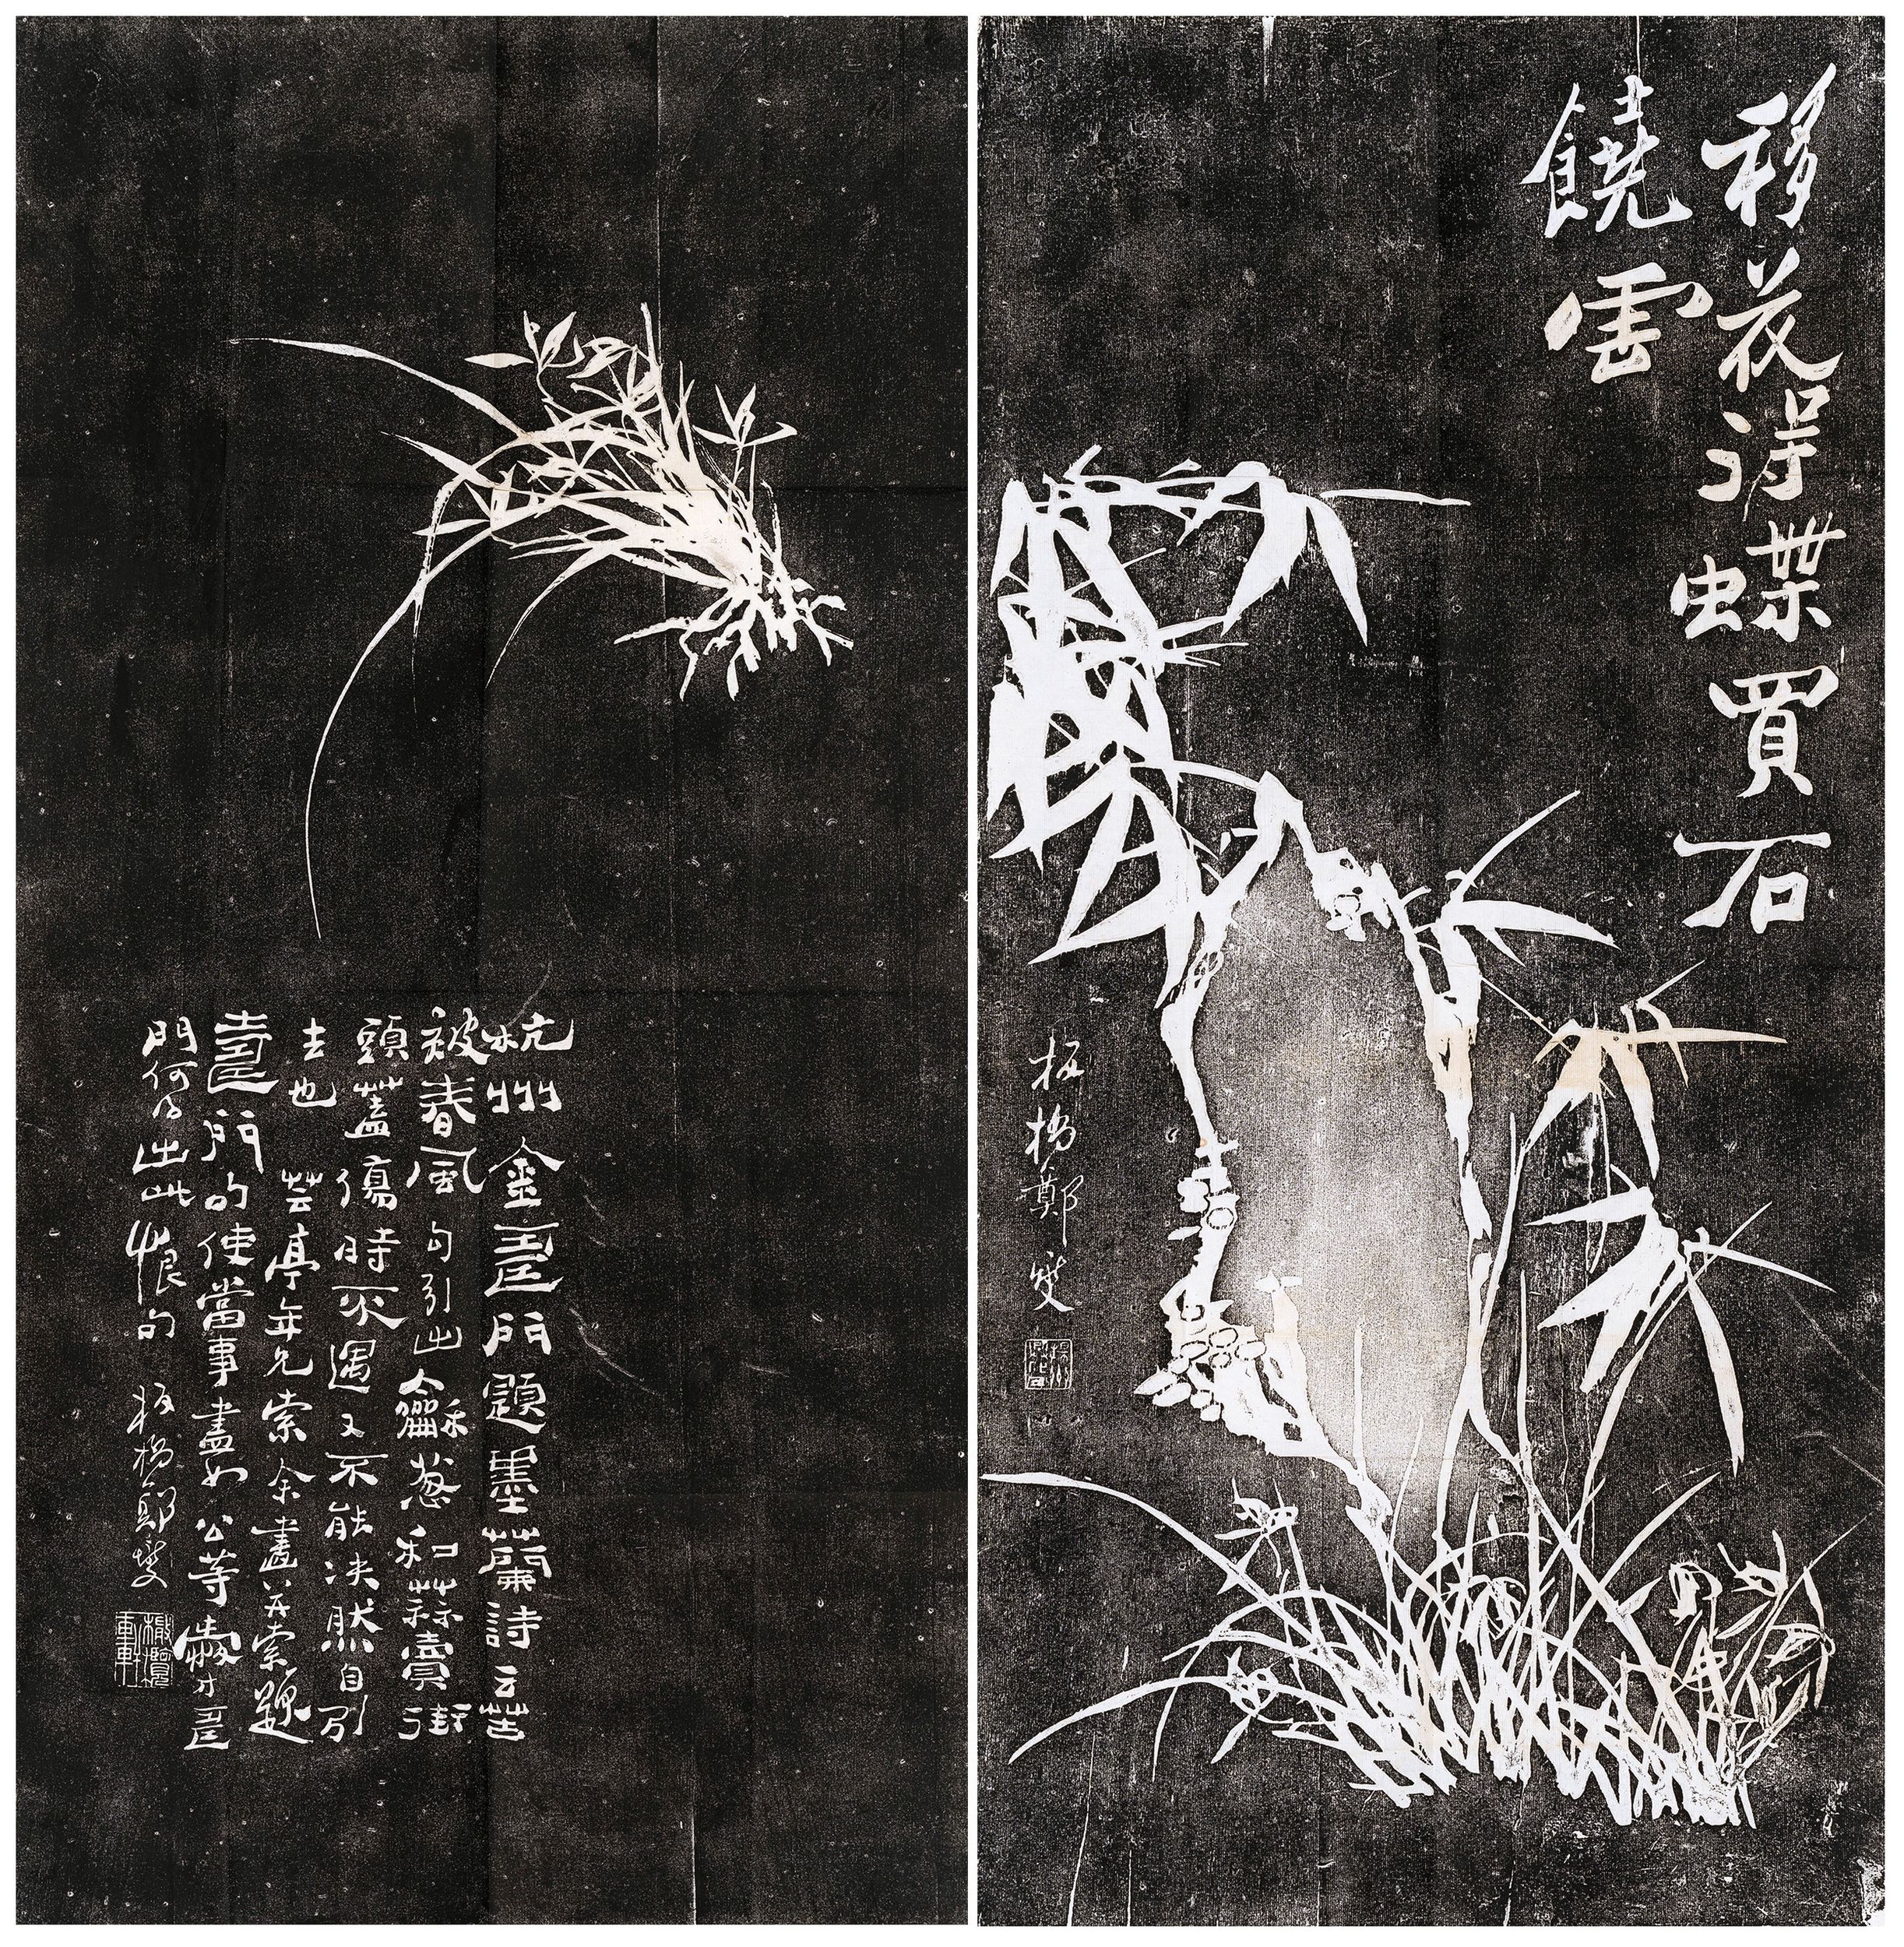 移花淂蝶買石
饒雲
板橋鄭燮
杭州金壽門題墨蘭詩云苦
被春風勾引出龢葱和蒜賣街
頭蓋傷時不遇又不能决然自引
去也 芸亭年兄索余畫并索題
壽門句使當事盡如公等愛才壽
門何得出此恨句 板橋鄭燮